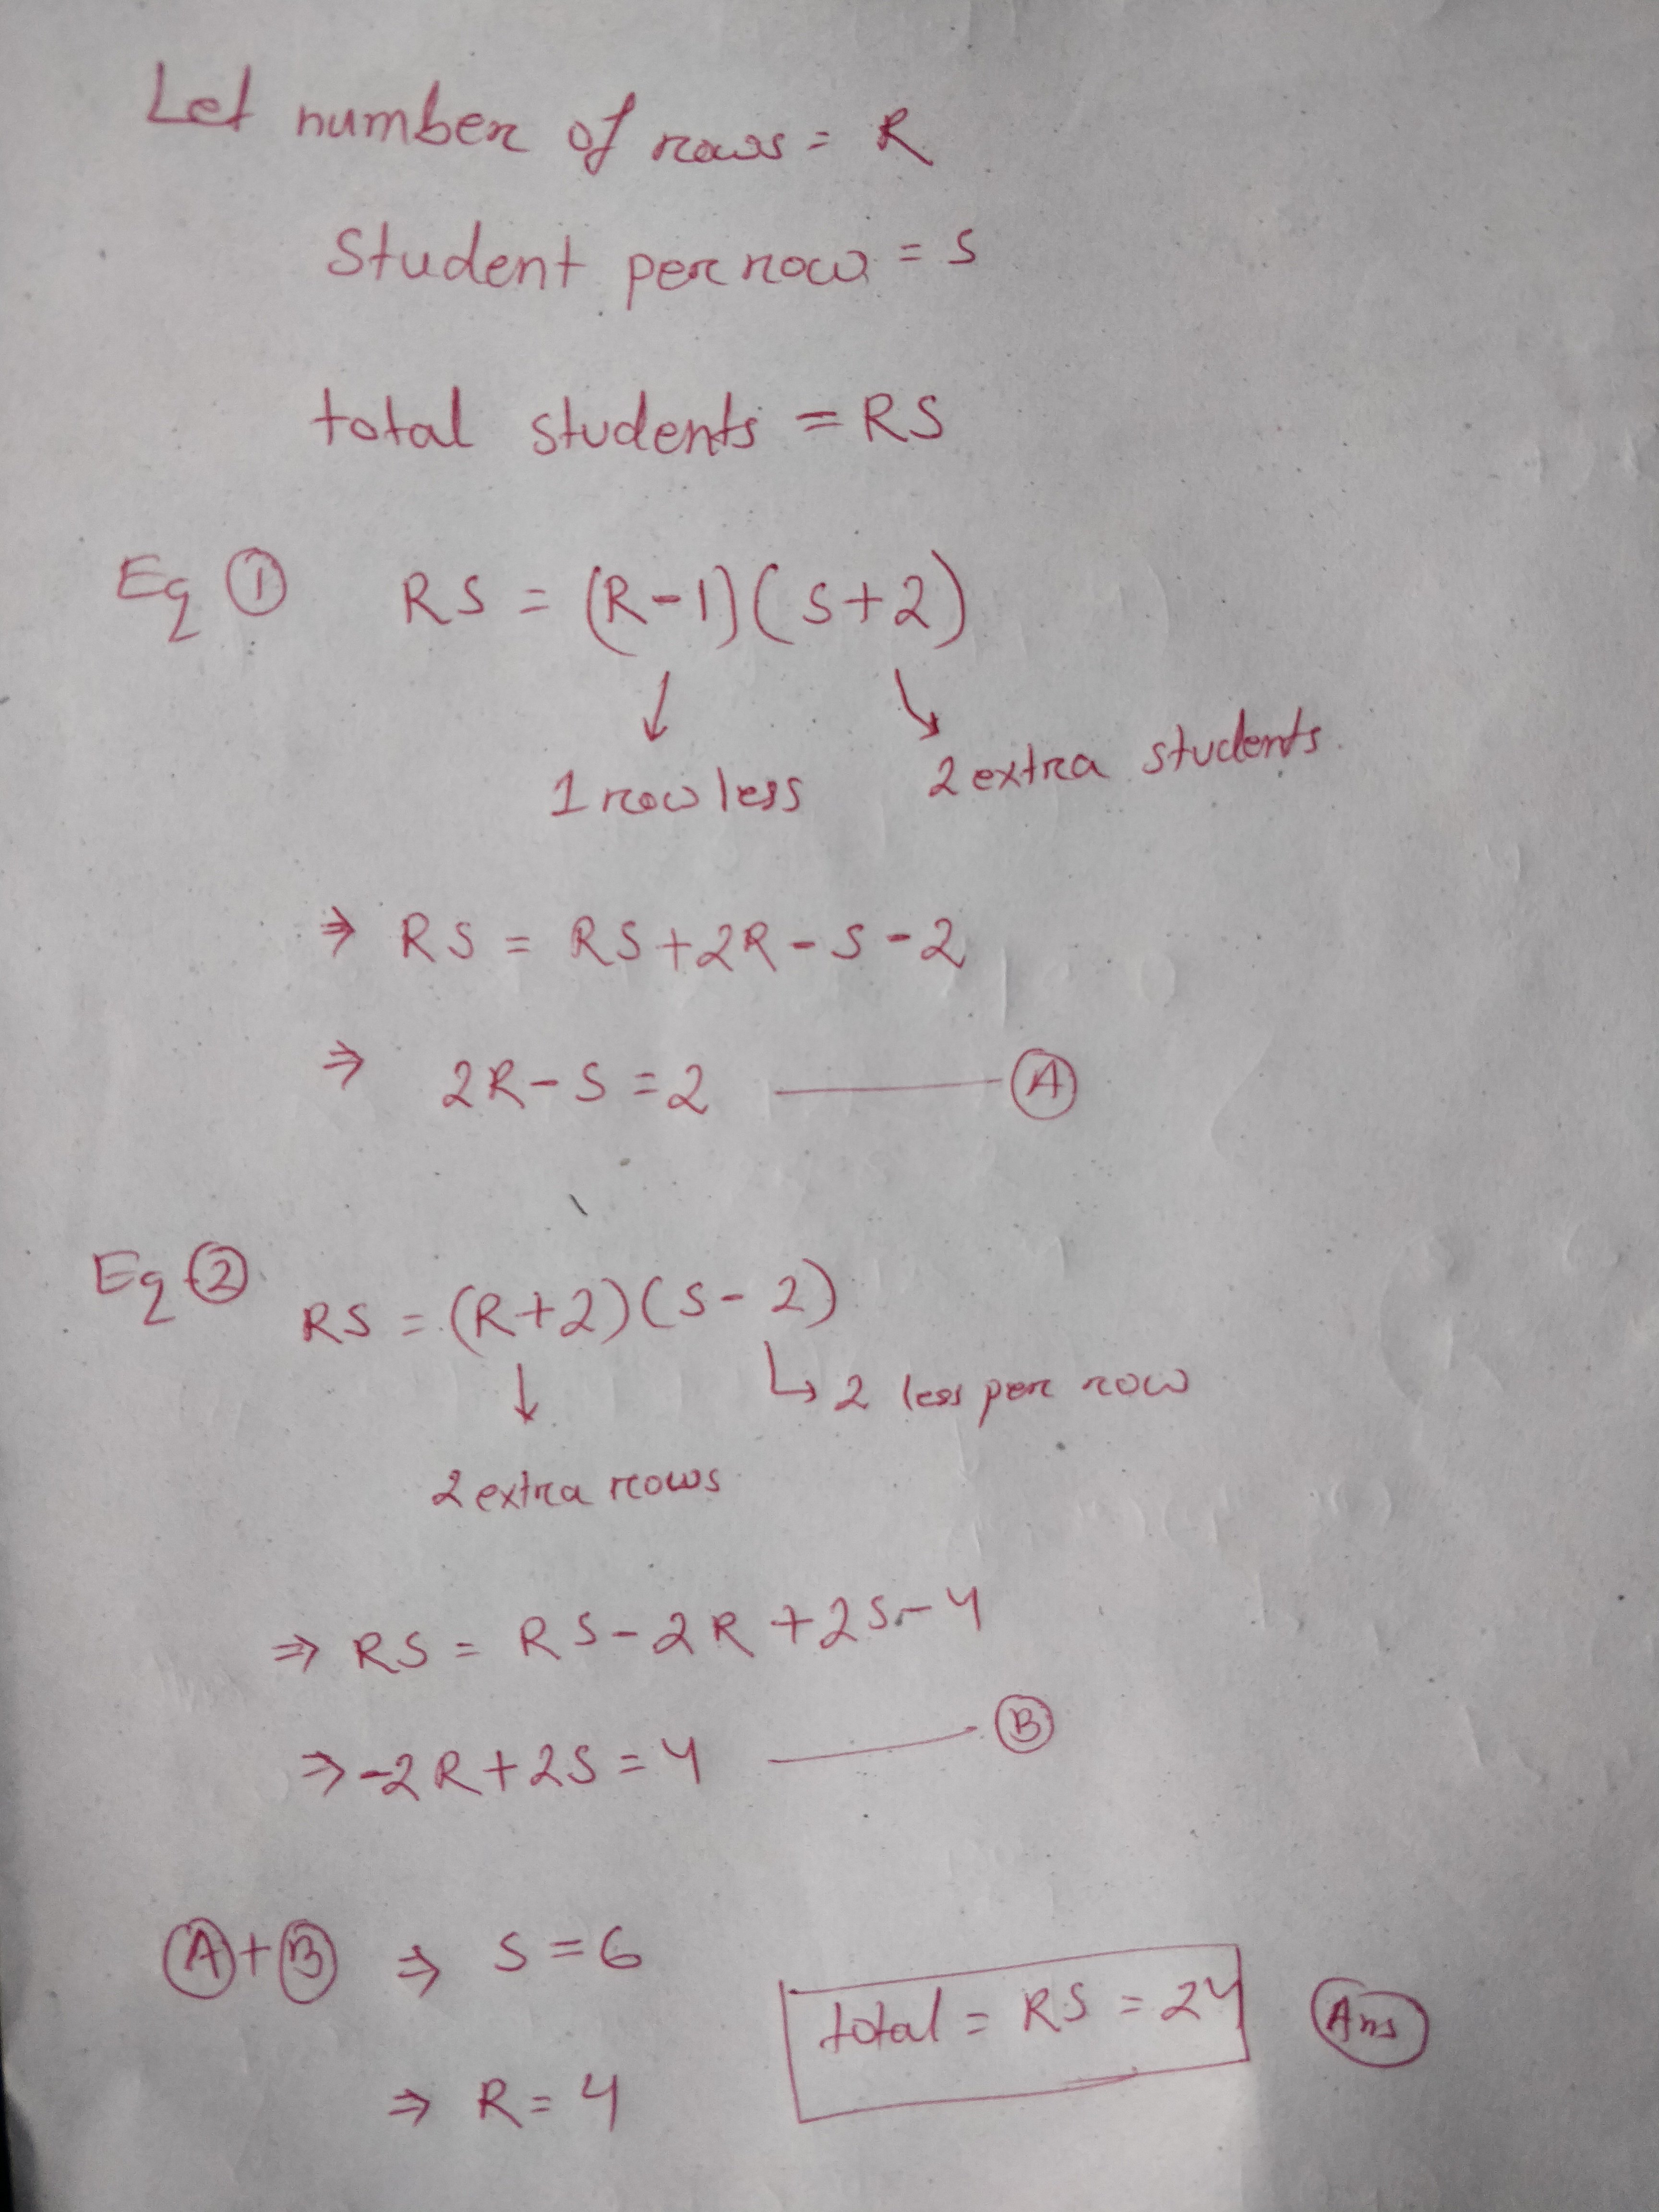 Let number of rows = R
Student per row = S
total students = RS
Eq ① RS = (R-1)(S+2)
↓ ↘
1 row less 2 extra students.
⇒ RS = RS+2R-S-2
⇒ 2R-S=2 —— Ⓐ
Eq ② RS = (R+2)(S-2)
↓ ↳ 2 less per row
2 extra rows
⇒ RS = RS-2R+2S-4
⇒ -2R+2S=4 —— Ⓑ
Ⓐ+Ⓑ ⇒ S=6
total = RS = 24 Ans
⇒ R=4